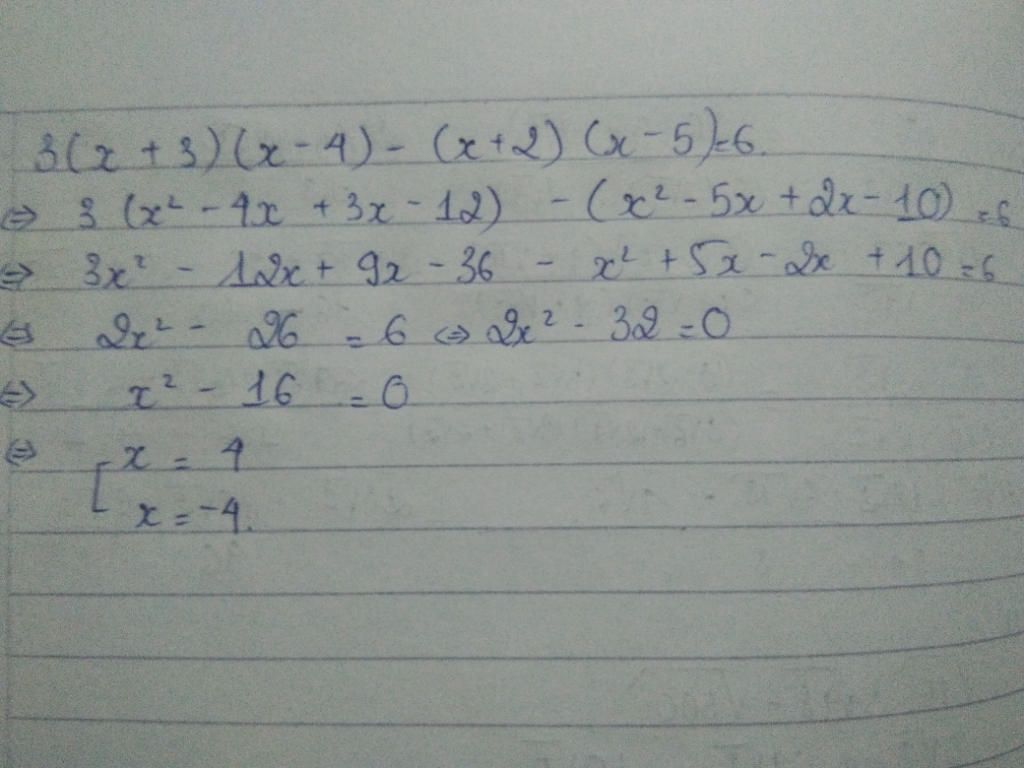 3(x + 3)(x - 4) - (x+2) (x - 5)=6.
⇔ 3 (x² - 4x + 3x - 12) - (x² - 5x + 2x - 10) = 6
⇔ 3x² - 12x + 9x - 36 - x² + 5x - 2x + 10 = 6
⇔ 2x² - 26 = 6 ⇔ 2x² - 32 = 0
⇔ x² - 16 = 0
⇔ [ x = 4
x = -4.